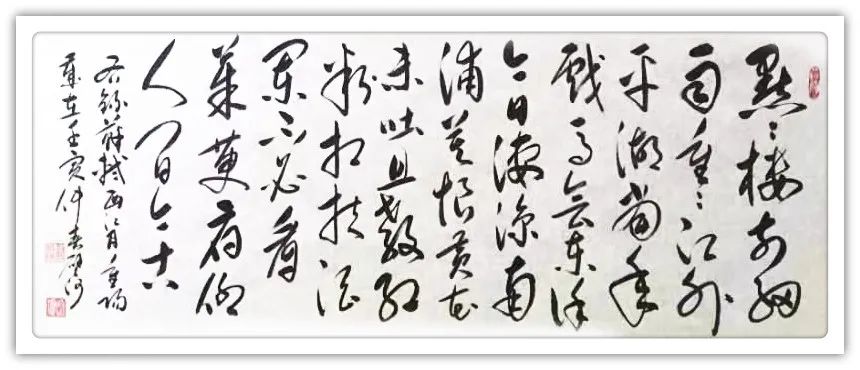 點〃楼前细
雨重〃江外
平湖當年
戏马会東徐
今日凄凉南
浦莫恨黄花
未吐且教红
粉相扶酒
阑不必看
茱萸俯仰
人间今古
右録蘇軾西江月重阳
壬寅仲春